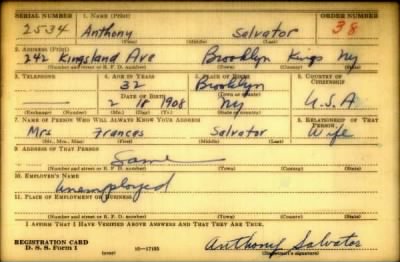 SERIAL NUMBER 1. NAME (Print) ORDER NUMBER
2534 Anthony Salvator 38
(First) (Middle) (Last)
2. ADDRESS (Print)
242 Kingsland Ave Brooklyn Kings Ny
(Number and street or R. F. D. number) (Town) (County) (State)
3. TELEPHONE 4. AGE IN YEARS 5. PLACE OF BIRTH 6. COUNTRY OF CITIZENSHIP
32 Brooklyn
DATE OF BIRTH (Town or county)
2 18 1908 Ny U.S.A
(Exchange) (Number) (Mo.) (Day) (Yr.) (State or country)
7. NAME OF PERSON WHO WILL ALWAYS KNOW YOUR ADDRESS 8. RELATIONSHIP OF THAT PERSON
Mrs Frances Salvator Wife
(Mr., Mrs., Miss) (First) (Middle) (Last)
9. ADDRESS OF THAT PERSON
Same
(Number and street or R. F. D. number) (Town) (County) (State)
10. EMPLOYER'S NAME
Unemployed
11. PLACE OF EMPLOYMENT OR BUSINESS
(Number and street or R. F. D. number) (Town) (County) (State)
I AFFIRM THAT I HAVE VERIFIED ABOVE ANSWERS AND THAT THEY ARE TRUE.
REGISTRATION CARD
D. S. S. Form 1 (over) 16—17105 Anthony Salvator
(Registrant's signature)